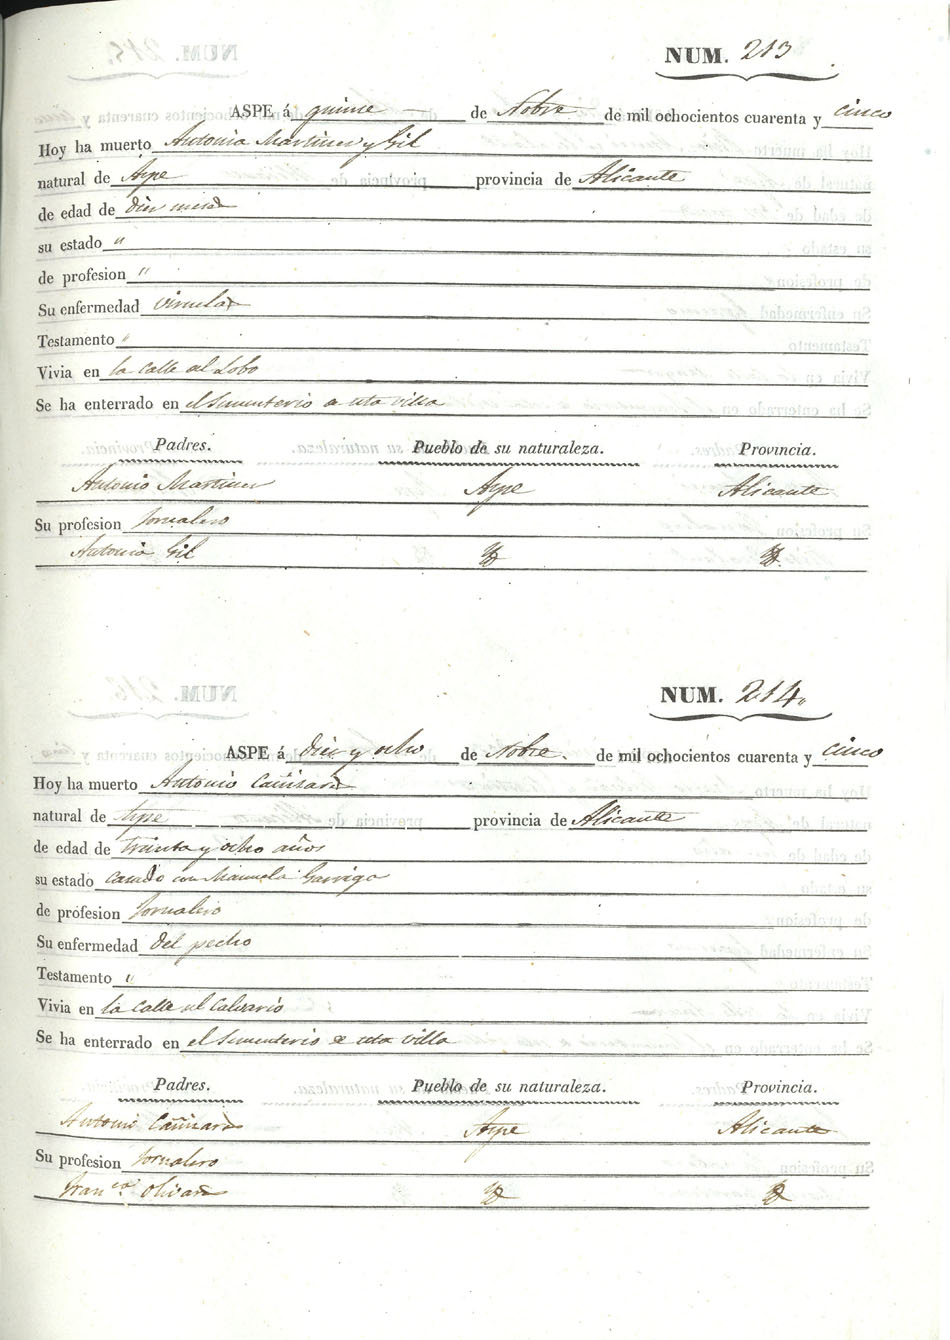 NUM. 213
ASPE á quinse de Nobre de mil ochocientos cuarenta y cinco
Hoy ha muerto Antonia Martines y Gil
natural de Aspe provincia de Alicante
de edad de dies meses
su estado "
de profesion "
Su enfermedad viruelas
Testamento "
Vivia en la calle del Lobo
Se ha enterrado en el Sementerio de esta villa
Padres. Pueblo de su naturaleza. Provincia.
Antonio Martines Aspe Alicante
Su profesion Jornalero
Antonia Gil
NUM. 214
ASPE á dies y ocho de Nobre. de mil ochocientos cuarenta y cinco
Hoy ha muerto Antonio Cañizares
natural de Aspe provincia de Alicante
de edad de treinta y ocho años
su estado casado con Manuela Garrigo
de profesion Jornalero
Su enfermedad del pecho
Testamento "
Vivia en la calle del Calvario
Se ha enterrado en el Sementerio de esta villa
Padres. Pueblo de su naturaleza. Provincia.
Antonio Cañizares Aspe Alicante
Su profesion Jornalero
Franca. Olivares